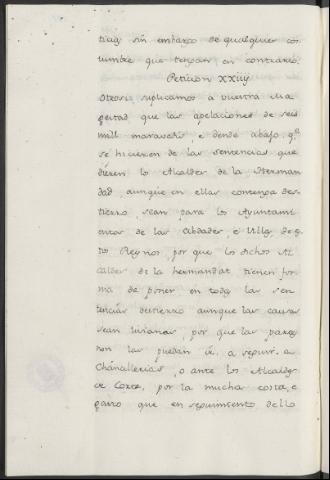 ticas sin embargo de qualquier cos
tumbre que tengan en contrario.
Peticion XXIIIJ
Otrosi suplicamos a vuestra Ma
gestad que las apelaciones de seis
mill maravedis, e dende abajo, q.e
se hicieren de las sentencias que
dieren los Alcaldes de la Herman
dad, aunque en ellas contenga des-
tierro, sean para los Ayuntami
entos de las Cibdades, e Villas de es
tos Reynos, por que los dichos Al
caldes de la hermandat tienen for
ma de poner en todas las sen
tencias destierro aunque las causas
sean livianas, por que las partes
non las puedan ir, a seguir a
Chancillerias, o ante los Alcaldes
de Corte, por la mucha costa, e
gasto que en seguimiento dello